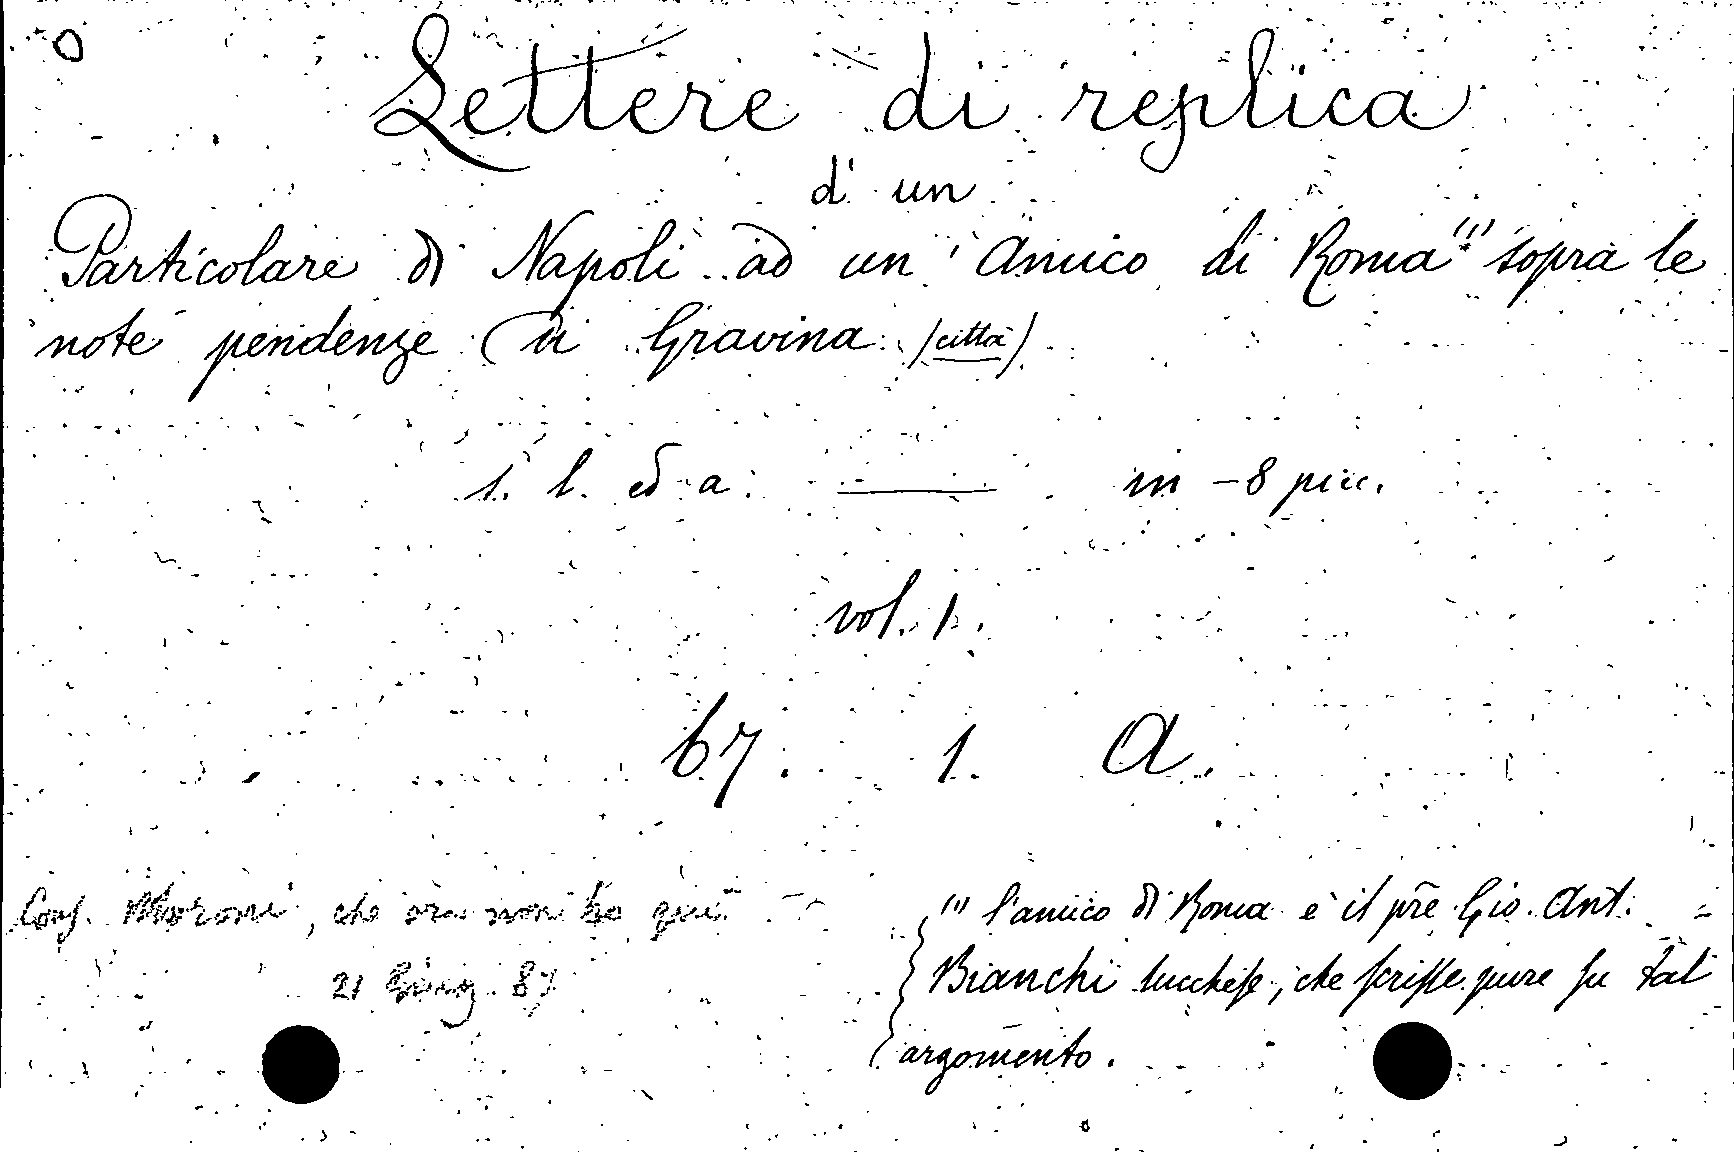 Lettere di replica
d' un
Particolare di Napoli ad un' Amico di Roma (1) sopra le
note pendenze di Gravina (città)
s. l. ed a. — in-8 picc.
vol. 1.
67. 1. A.
Conf. Moroni, che ora non ho qui
21 Giug. 87
(1) l'amico di Roma è il pre Gio. Ant.
Bianchi lucchese, che scrisse pure su tal
argomento.